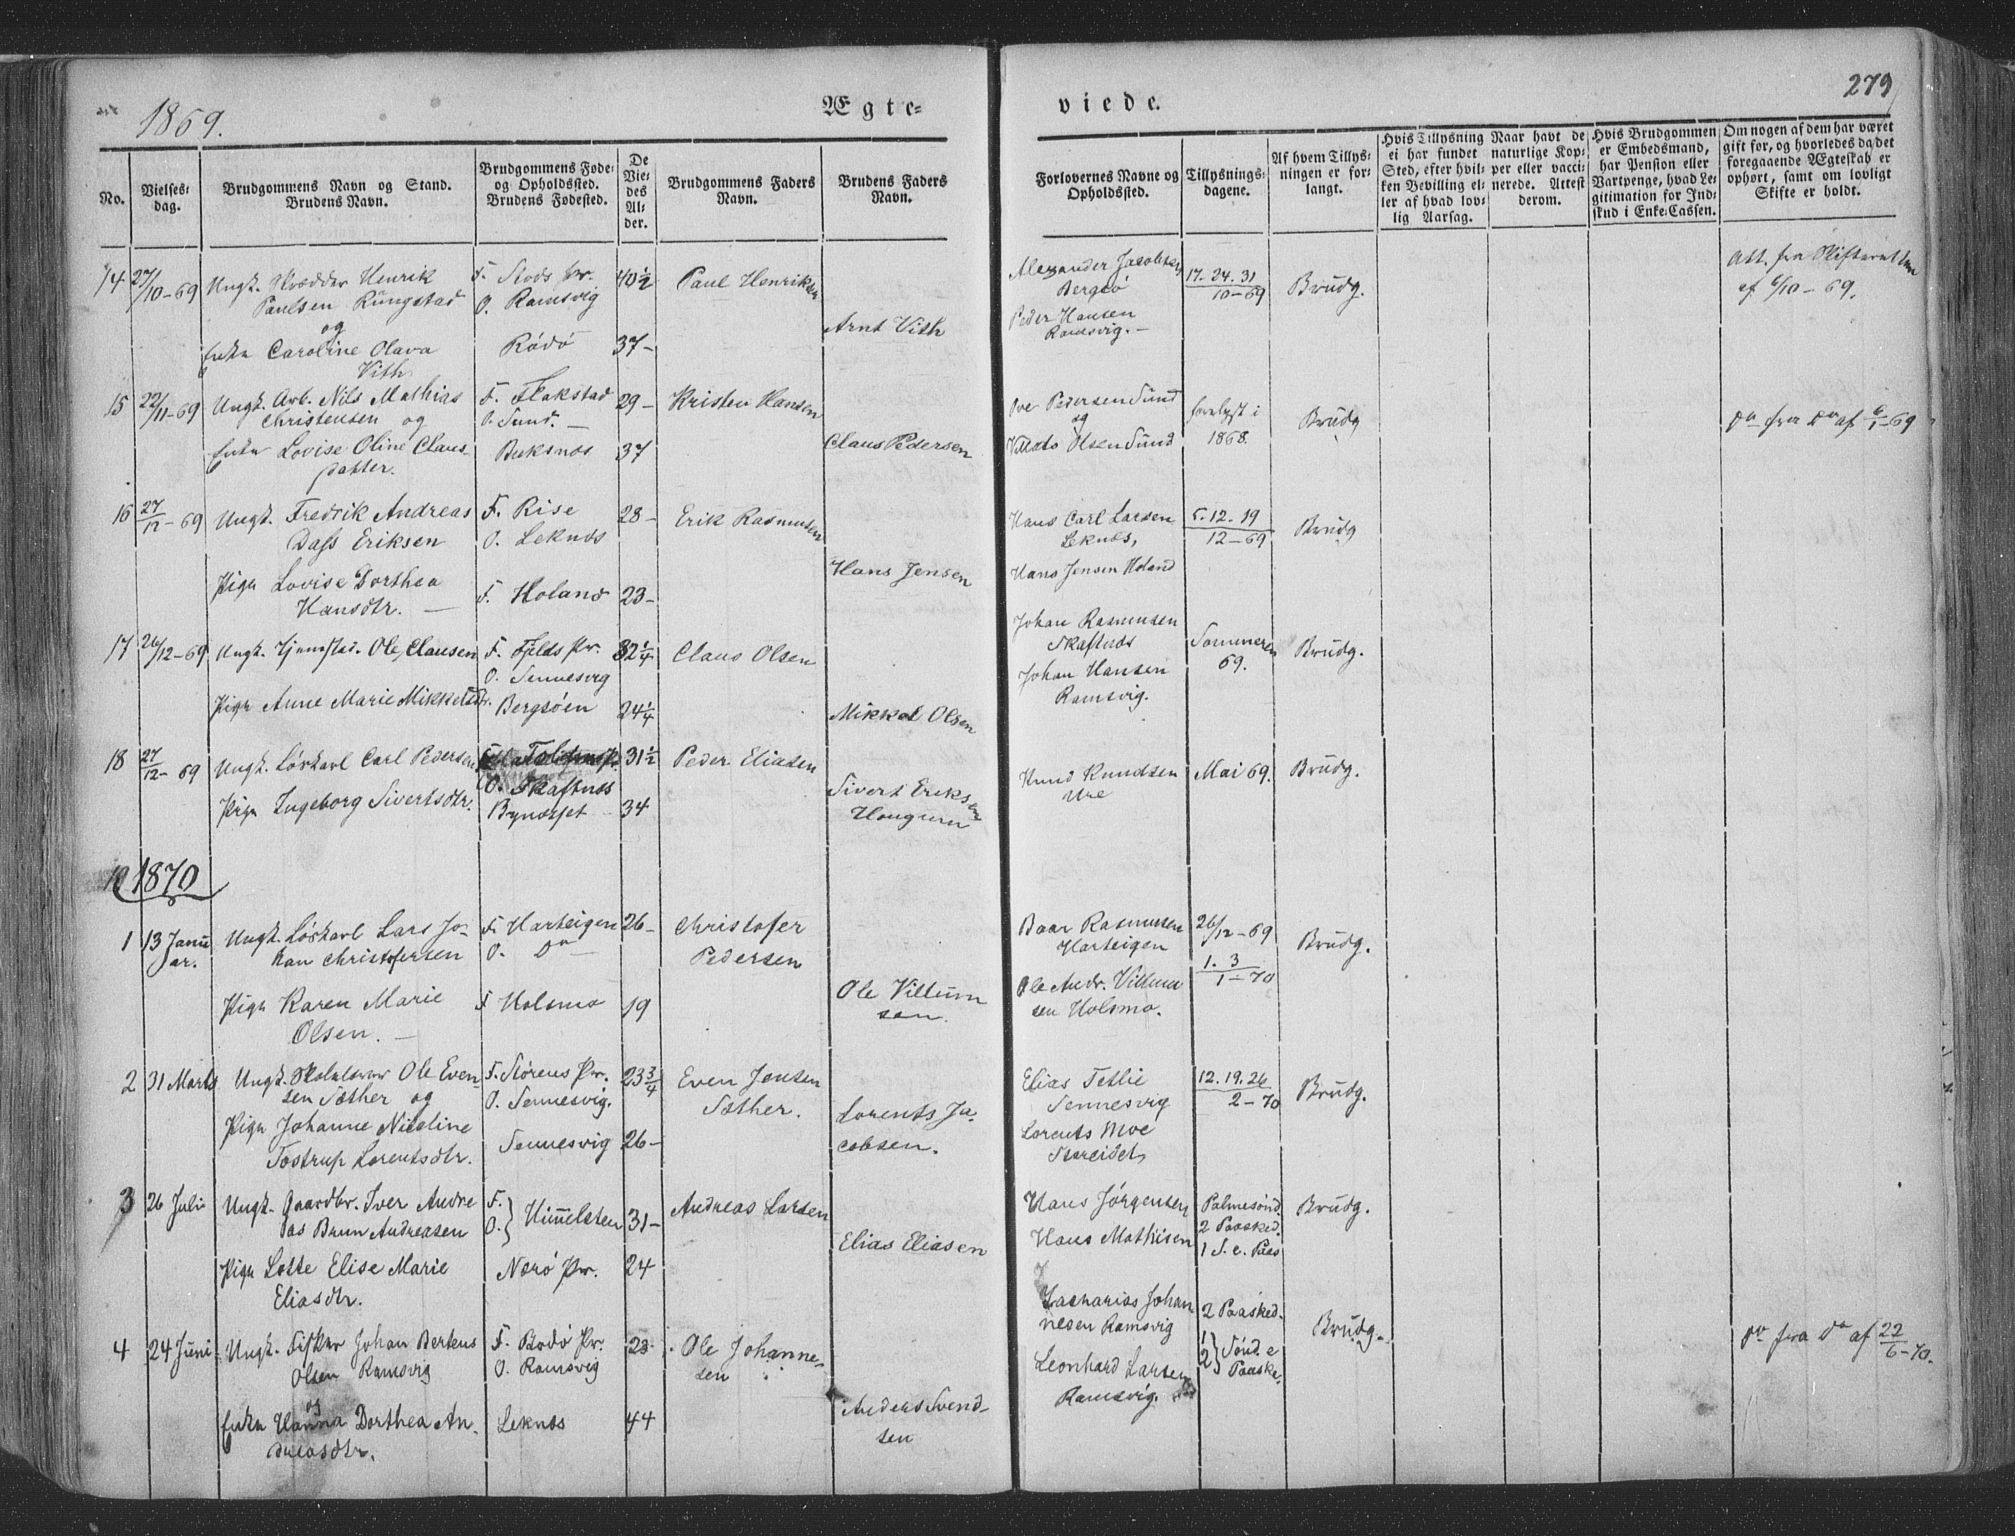 1869.
Ægte-
viede.
279
No.
Vielses-
dag.
Brudgommens Navn og Stand.
Brudens Navn.
Brudgommens Føde-
og Opholdssted.
Brudens Fødested.
De
Vie-
des
Al-
der.
Brudgommens Faders
Navn.
Brudens Faders
Navn.
Forlovernes Navne og
Opholdssted.
Tillysnings-
dagene.
Af hvem Tillys-
ningen er for-
langt.
Hvis Tillysning
ei har fundet
Sted, efter hvil-
ken Bevilling el-
ler af hvad lov-
lig Aarsag.
Naar havt de
naturlige Kop-
per eller vacci-
nerede. Attest
derom.
Hvis Brudgommen
er Embedsmand,
har Pension eller
Vartpenge, hvad Le-
gitimation for Ind-
skud i Enke-Cassen.
Om nogen af dem har været
gift før, og hvorledes da det
foregaaende Ægteskab er
ophørt, samt om lovligt
Skifte er holdt.
14 27/10-69 Ungk. Skrædder Henrik
Paulsen Rungstad
og
Enke Caroline Olava
Vith
F. Stods Pr.
O. Ramsvig
Rødø
40 1/2
37-
Paul Henriksen
Arnt Vith
Alexander Jacobsen
Bergsø
Peder Hansen
Ramsvig. -
17. 24. 31
10-69
Brudg.
Att. fra Skifteretten
af 6/10-69.
15 22/11-69 Ungk. Arb. Nils Mathias
Christensen og
Enke Lovise Oline Claus-
datter.
F. Flakstad
O. Sund. -
Buksnes
29-
37
Kristen Hansen
Claus Pedersen
Ove Pedersen Sund
og
Villats Olsen Sund
forelyst i
1868.
Brudg
Do fra Do af 6/1-69
16 27/12-69 Ungk. Fredrik Andreas
Dass Eriksen
Pige Lovise Dorthea
Hansdtr. -
F. Rise
O. Leknes
F. Holand
28-
23-
Erik Rasmusen
Hans Jensen
Hans Carl Larsen
Leknes,
Hans Jensen Holand
5. 12. 19
12-69
Brudg
17 26/12-69 Ungk. Tjenestkd. Ole Clausen
Pige Anne Marie Mikkelsdtr.
F. Fjelds Pr.
O. Sennesvig
Bergsøen
32 1/4
24 1/4
Claus Olsen
Mikkel Olsen
Johan Rasmusen
Skaftnes
Johan Hansen
Ramsvig.
Sommeren
69.
Brudg.
18 27/12-69 Ungk. Løskarl Carl Pedersen
Pige Ingeborg Sivertsdtr.
O. Skaftnes
Bynesset
31 1/2
34
Peder Eliasen
Sivert Eriksen
Hougum
Knud Knudsen
Ure
Mai 69.
Brudg.
1870
1 13 Janu
ar.
Ungk. Løskarl Lars Jo-
han Christofersen
Pige Karen Marie
Olsen. -
F. Harteigen
O. Do -
F Holsmo
26-
19
Christofer
Pedersen
Ole Villum
sen.
Baar Rasmusen
Harteigen
Ole Andr. Villum
sen Holsmo.
26/12-69
1. 3
1-70
Brudg.
2 31 Marts Ungk. Skolelærer Ole Even-
sen Sæther og
Pige Johanne Nicoline
Tostrup Lorentsdtr.
F. Størens Pr.
O. Sennesvig.
Sennesvig
23 3/4
26-
Even Jensen
Sæther.
Lorents Ja-
cobsen.
Elias Tetlie
Sennesvig
Lorents Moe
Storeidet
12. 19. 26
2-70
Brudg.
3 26 Juli Ungk. Gaardbr. Iver Andre
as Brun Andreasen
Pige Lotte Elise Marie
Eliasdtr.
F.
O.
Himmelsten
Nerø Pr.
31-
24
Andreas Larsen
Elias Eliasen
Hans Jørgensen
Hans Mathisen
Palmesønd.
2 Paasked.
1 S. e. Paas
Brudg.
4 24 Juni Ungk. Fisker Johan Bertens
Olsen Ramsvig
og
Enke Hanna Dorthea An-
dreasdtr.
F. Bodø Pr.
O. Ramsvig
Leknes
23
44
Ole Johanne-
sen
Anders Svend-
sen
Zacharias Johan
nesen Ramsvig
Leonhard Larsen
Ramsvig.
2 Paasked.
1
2
Sønd. e
Paaske.
Brudg.
Do fra Do af 22/6-70.